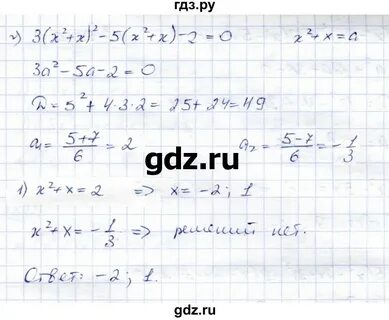 гдз.ру
г) 3(x²+x)²-5(x²+x)-2=0 x²+x=a
3a²-5a-2=0
D=5²+4·3·2=25+24=49
a₁=(5+7)/6=2 a₂=(5-7)/6=-1/3
gdz.ru
1) x²+x=2 => x=-2; 1
x²+x=-1/3 => решений нет.
Ответ: -2; 1.
гдз.ру